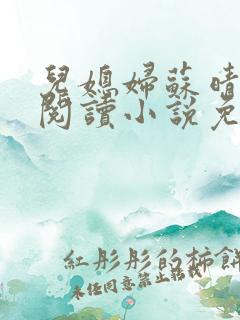 兒媳婦蘇晴
閱讀小說免
紅彤彤的柿餅
未經同意禁止轉載